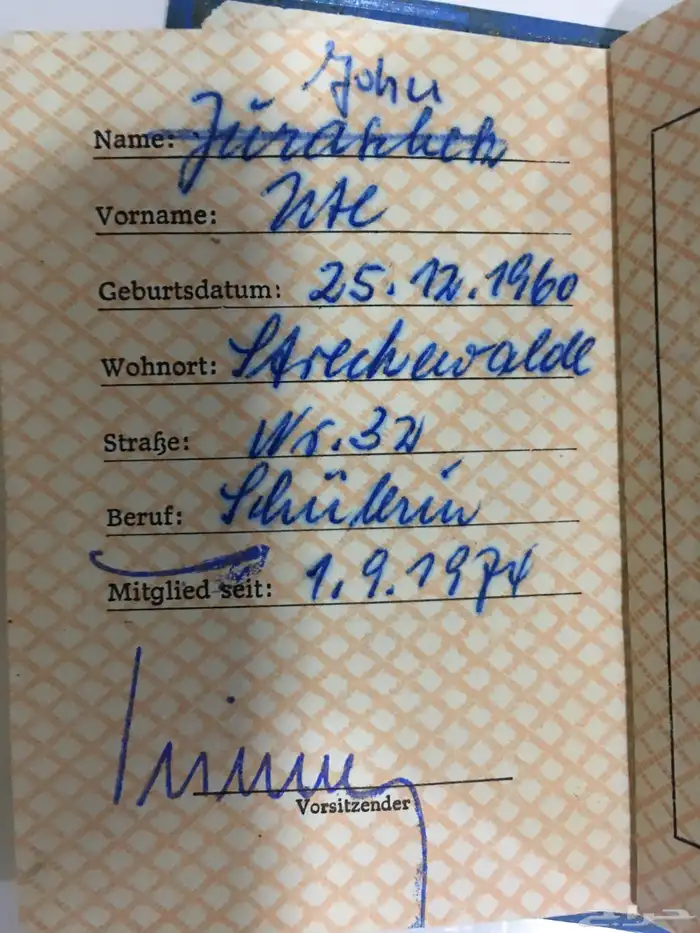 John
Name: Juraschek
Vorname: Ute
Geburtsdatum: 25.12.1960
Wohnort: Streckewalde
Straße: Nr. 32
Beruf: Schülerin
Mitglied seit: 1.9.1974
Vorsitzender
حراج